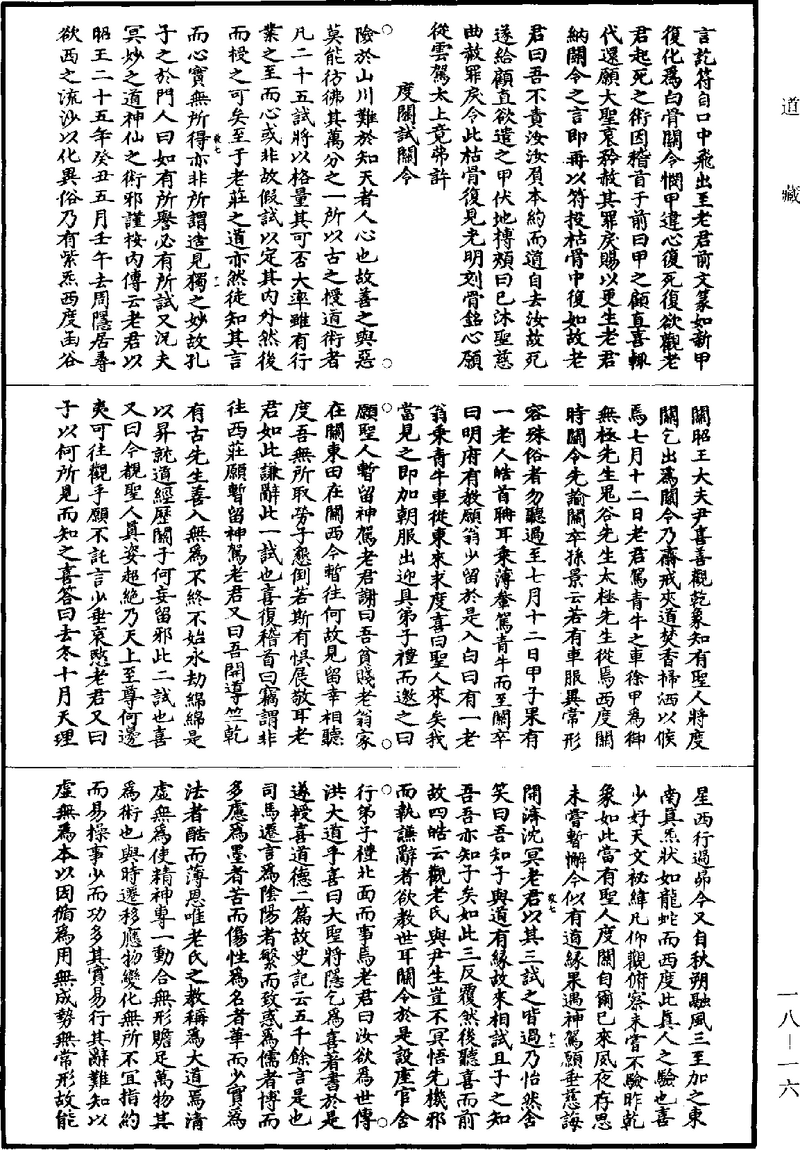 道藏
言訖符自口中飛出至老君前文篆如新甲
復化為白骨關令憫甲違心復死復欲觀老
君起死之術因稽首于前曰甲之顧直喜輒
代還願大聖哀矜赦其罪戾賜以更生老君
納關令之言即再以符投枯骨中復如故老
君曰吾不責汝汝負本約而道自去汝故死
遂給顧直欲遣之甲伏地摶頰曰已沐聖慈
曲赦罪戾令此枯骨復見光明刻骨銘心願
從雲駕太上竟弗許
度關試關令
險於山川難於知天者人心也故善之與惡
莫能彷彿其萬分之一所以古之授道術者
凡二十五試將以格量其可否大率雖有行
業之至而心或非故假試以定其內外然後
而授之可矣至于老莊之道亦然徒知其言
而心實無所得亦非所謂造見獨之妙故孔
子之於門人曰如有所譽必有所試又況夫
冥妙之道神仙之術邪謹按內傳云老君以
昭王二十五年癸丑五月壬午去周隱居尋
欲西之流沙以化異俗乃有紫炁西度函谷
關昭王大夫尹喜善觀乾象知有聖人將度
關乞出為關令乃齋戒夾道焚香掃洒以候
焉七月十二日老君駕青牛之車徐甲為御
無極先生鬼谷先生太極先生從焉西度關
時關令先諭關卒孫景云若有車服異常形
容殊俗者勿聽過至七月十二日甲子果有
一老人皓首聃耳乘薄軬駕青牛而至關卒
曰明府有教願翁少留於是入白曰有一老
翁乘青牛車從東來求度喜曰聖人來矣我
當見之即加朝服出迎具弟子禮而邀之曰
願聖人暫留神駕老君謝曰吾貧賤老翁家
在關東田在關西今暫往何故見留幸相聽
度吾無所取勞子懃倒若斯有悞展敬耳老
君如此謙辭此一試也喜復稽首曰竊謂非
往西莊願暫留神駕老君又曰吾聞導竺乾
有古先生善入無為不終不始永劫綿綿是
以昇就道經歷關子何妄留邪此二試也喜
又曰今觀聖人真姿超絕乃天上至尊何邊
夷可往觀乎願不託言少垂哀愍老君又曰
子以何所見而知之喜答曰去冬十月天理
星西行過昴今又自秋朔融風三至加之東
南真炁狀如龍蛇而西度此真人之驗也喜
少好天文祕緯凡仰觀俯察未嘗不驗昨乾
象如此當有聖人度關自爾已來夙夜存思
未嘗暫懈今似有道緣果遇神駕願垂慈誨
開濟沈冥老君以其三試之皆過乃怡然含
笑曰吾知子與道有緣故來相試且子之知
吾吾亦知子矣如此三反覆然後聽喜而前
故四皓云觀老氏與尹生豈不冥悟先機邪
而執謙辭者欲教世耳關令於是設座官舍
行弟子禮北面而事焉老君曰汝欲為世傳
洪大道乎喜曰大聖將隱乞為喜著書於是
遂授喜道德二篇故史記云五千餘言是也
司馬遷言為陰陽者繁而致惑為儒者博而
多慮為墨者苦而傷性為名者華而少實為
法者酷而薄恩唯老氏之教稱為大道焉清
虛無為使精神專一動合無形贍足萬物其
為術也與時遷移應物變化無所不宜指約
而易操事少而功多其實易行其辭難知以
虛無為本以因循為用無成勢無常形故能
一八—一六